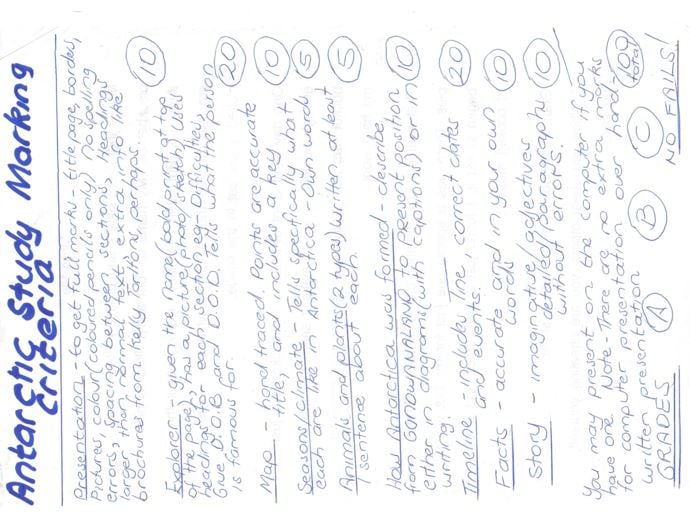 Antarctic Study Marking
Criteria
Presentation - to get full marks - title page, border,
pictures, colour (coloured pencils only) no spelling
errors, spacing between sections, Headings
larger than normal text, extra info like
brochures from Kelly Tarltons, perhaps. 10
Explorer - given the name (bold print at top
of the page), has a picture/photo/sketch) uses
headings for each section eg- Difficulties,
Give D.O.B and D.O.D. Tells what the person
is famous for. 20
Map - hand traced. Points are accurate
title, and includes a key 10
Seasons/climate - Tells specifically what
each are like in Antarctica - Own words 5
Animals and plants (2 types) written at least
1 sentence about each. 5
How Antarctica was formed - describe
from GONDWANALAND to present position
either in diagrams (with captions!) or in
writing. 10
Timeline - include Title, correct dates
and events. 20
Facts - accurate and in your own
words 10
Story - imaginative/adjectives
detailed/paragraphs
without errors. 10
You may present on the computer if you
have one. Note - There are no extra marks
for computer presentation over hand-
written presentation 100
total
GRADES A B C NO FAILS!